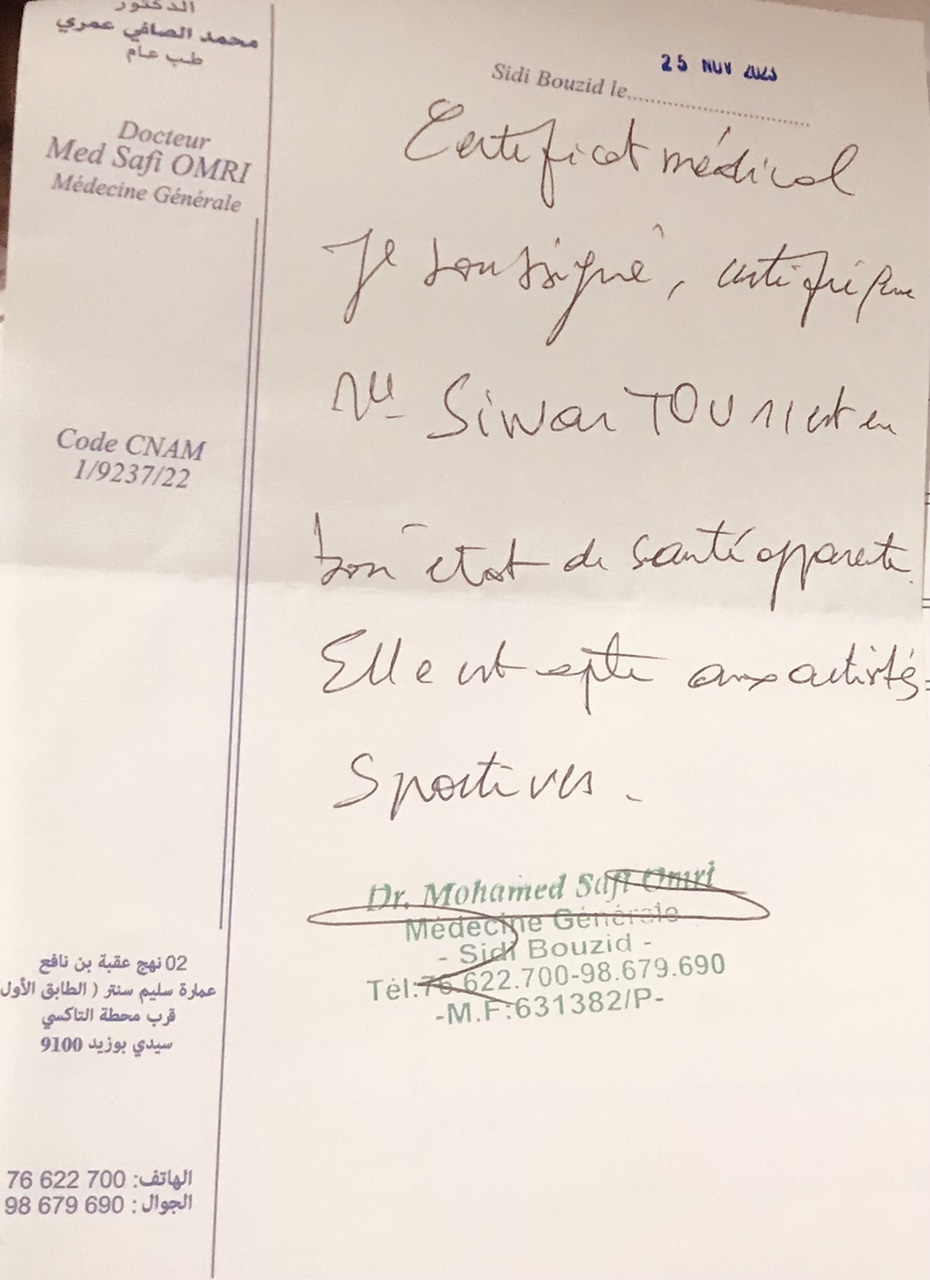 الدكتور
محمد الصافي عمري
طب عام
Docteur
Med Safi OMRI
Médecine Générale
Code CNAM
1/9237/22
02 نهج عقبة بن نافع
عمارة سليم سنتر ( الطابق الأول
قرب محطة التاكسي
سيدي بوزيد 9100
الهاتف: 76 622 700
الجوال : 98 679 690
Sidi Bouzid le
25 NOV 2023
Certificat médical
Je soussigné, certifie que
Mlle Siwar TOUNI est en
bon état de santé apparente.
Elle est apte aux activités
Sportives.
Dr. Mohamed Safi Omri
Médecine Générale
- Sidi Bouzid -
Tél:76.622.700-98.679.690
-M.F:631382/P-